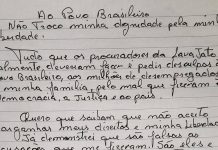 Ao Povo Brasileiro
Não troco minha dignidade pela minha
liberdade.
Tudo que os procuradores da Lava Jato
realmente deveriam fazer é pedir desculpas ao
Povo Brasileiro, aos milhões de desempregados
e à minha família, pelo mal que fizeram à
democracia, à Justiça e ao país.
Quero que saibam que não aceito
barganhar meus direitos e minha liberdade.
Já demonstrei que são falsas as
acusações que me fizeram. São eles e